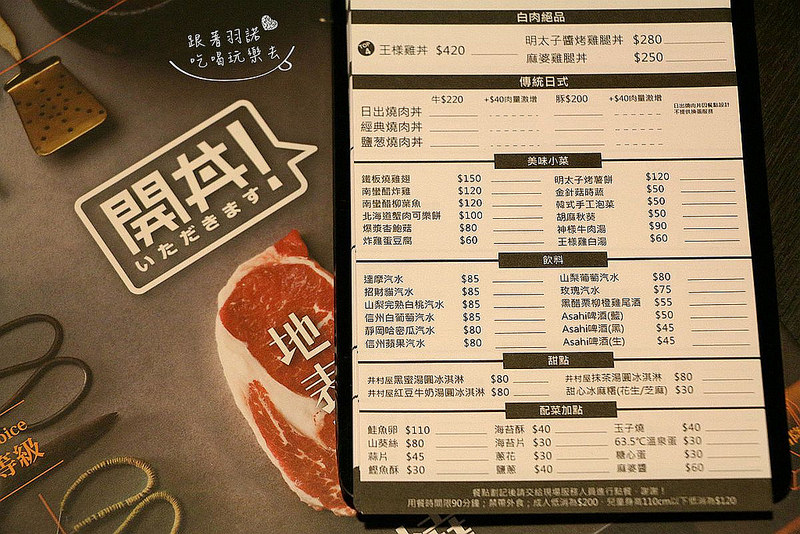 跟著羽諾
吃喝玩樂去
開丼!
いただきます
地表
等級
白肉絕品
王様雞丼 $420
明太子醬烤雞腿丼 $280
麻婆雞腿丼 $250
傳統日式
牛$220 +$40肉量激增 豚$200 +$40肉量激增
日出燒肉丼
經典燒肉丼
鹽葱燒肉丼
日出燒肉丼因餐點設計
不提供換蛋服務
美味小菜
鐵板燒雞翅 $150
南蠻醋炸雞 $120
南蠻醋柳葉魚 $120
北海道蟹肉可樂餅 $100
爆漿杏鮑菇 $80
炸雞蛋豆腐 $60
明太子烤薯餅 $120
金針菇時蔬 $50
韓式手工泡菜 $50
胡麻秋葵 $50
神様牛肉湯 $90
王様雞白湯 $60
飲料
達摩汽水 $85
招財貓汽水 $85
山梨完熟白桃汽水 $85
信州白葡萄汽水 $85
靜岡哈密瓜汽水 $80
信州蘋果汽水 $80
山梨葡萄汽水 $80
玫瑰汽水 $75
黑醋栗柳橙雞尾酒 $55
Asahi啤酒(藍) $50
Asahi啤酒(黑) $45
Asahi啤酒(生) $45
甜點
井村屋黑蜜湯圓冰淇淋 $80
井村屋紅豆牛奶湯圓冰淇淋 $80
井村屋抹茶湯圓冰淇淋 $80
甜心冰麻糬(花生/芝麻) $30
配菜加點
鮭魚卵 $110
山葵絲 $80
蒜片 $45
鰹魚酥 $30
海苔酥 $40
海苔片 $30
蔥花 $30
鹽蔥 $40
玉子燒 $40
63.5°C溫泉蛋 $30
糖心蛋 $30
麻婆醬 $60
餐點劃記後請交給現場服務人員進行點餐，謝謝！
用餐時間限90分鐘；禁帶外食；成人低消為$200，兒童身高110cm以下低消為$120